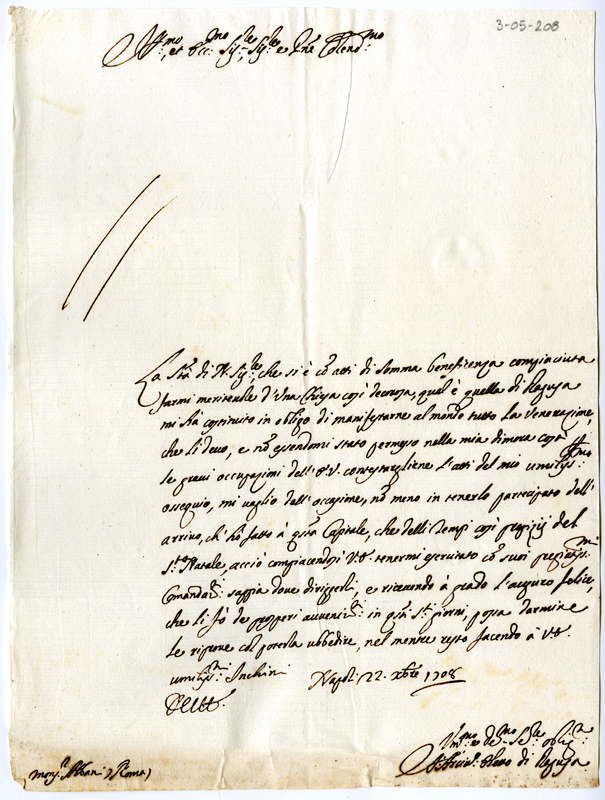 3-05-208
Ill.mo et Ecc.mo Sig.re Sig.re e Pne Colend.mo
La S.tà di N. Sig.re, che si è cō atti di somma beneficenza compiaciuta
farmi meritevole d'Una Chiesa così decorosa, qual è quella di Ragusa
mi hà costituito in obligo di manifestarne al mondo tutto la venerazione,
che li devo, e nō essendomi stato permesso nella mia dimora costà
le gravi occupazioni dell'E.V. contestargliene l'atti del mio umiliss.mo
ossequio, mi vaglio dell'occasione, nō meno in tenerlo partecipato dell'
arrivo, ch'hò fatto à q.sta Capitale, che delli tempi così propizij del
S.to Natale, acciò compiacendosi V.E. tenermi esercitato cō suoi pregiatiss.mi
Comanda.ti sappia dove dirigerli, e ricevendo à grado l'auguro felice,
che li fò de prosperi avvenim.ti in q.sti S.ti giorni, possa darmine
le riprove col poterla ubbedire, nel mentre resto facendo à V.E.
umiliss.mi Inchini Napoli 22. Xbre 1708
D'E.V.
Um.mo e De.mo Se.re oblig.mo
Arciv.o eletto di Ragusa
Mons.r Albani (Roma)